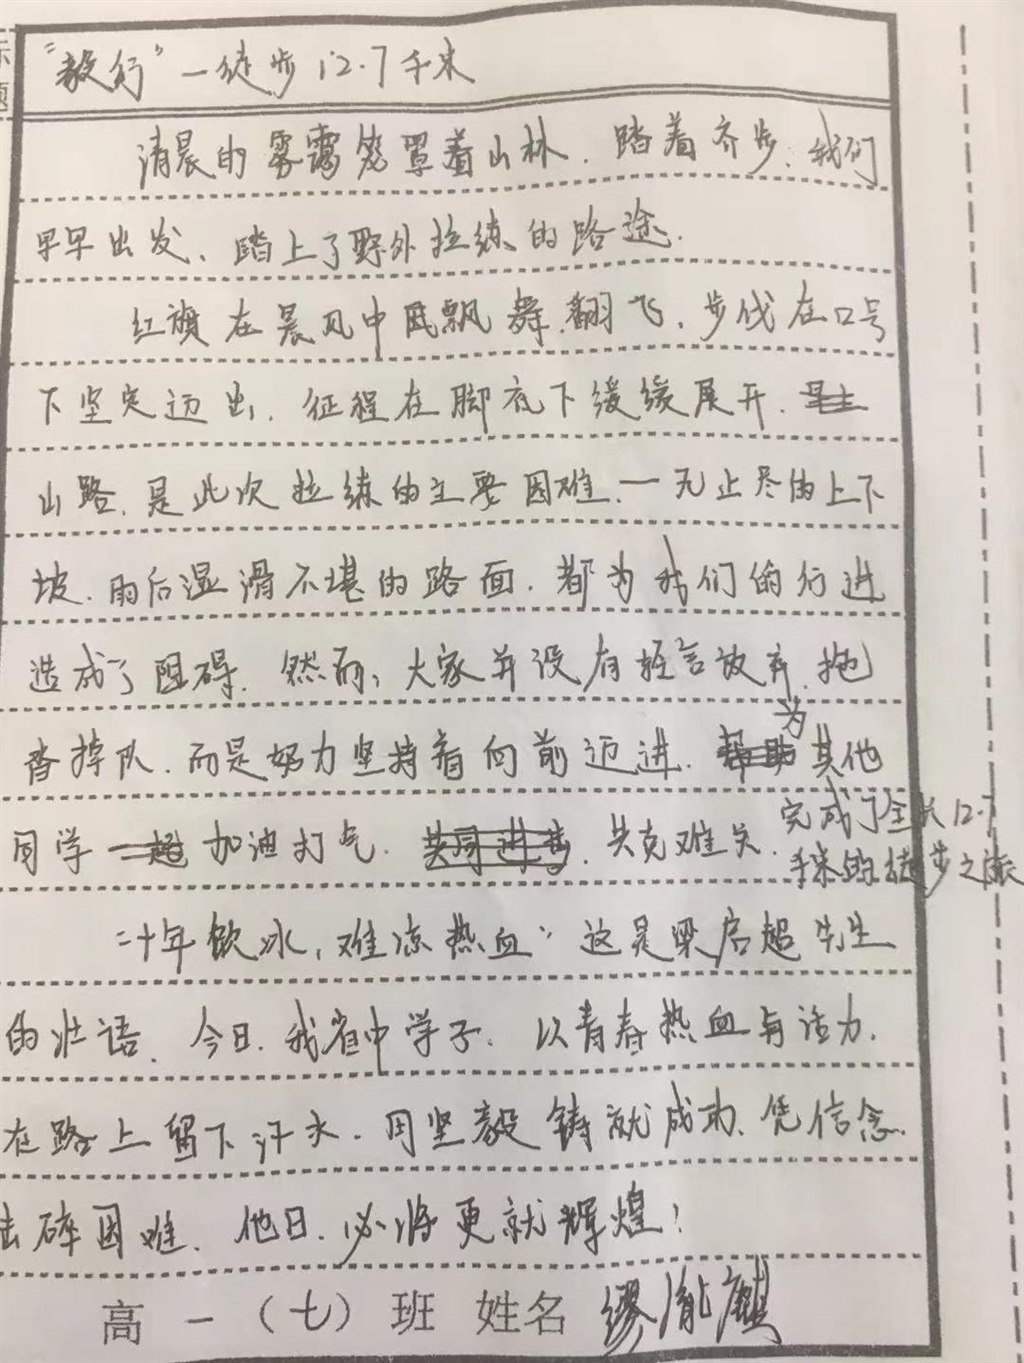 标题
“毅行”一徒步12.7千米
清晨的雾霭笼罩着山林.踏着齐步、我们
早早出发、踏上了野外拉练的路途.
红旗在晨风中飘舞.翻飞.步伐在口号
下坚实迈出.征程在脚底下缓缓展开.
山路.是此次拉练的主要困难.一无止尽的上下
坡.雨后湿滑不堪的路面.都为我们的行进
造成了阻碍.然而,大家并没有轻言放弃.拖
沓掉队.而是努力坚持着向前迈进.为其他
同学加油打气.共克难关.完成了全长12.7
千米的徒步之旅
“十年饮冰,难凉热血”这是梁启超先生
的壮语.今日.我省中学子.以青春热血与活力.
在路上留下汗水.用坚毅铸就成功.凭信念.
击碎困难.他日.必将更就辉煌!
高一(七)班 姓名 缪胤麒